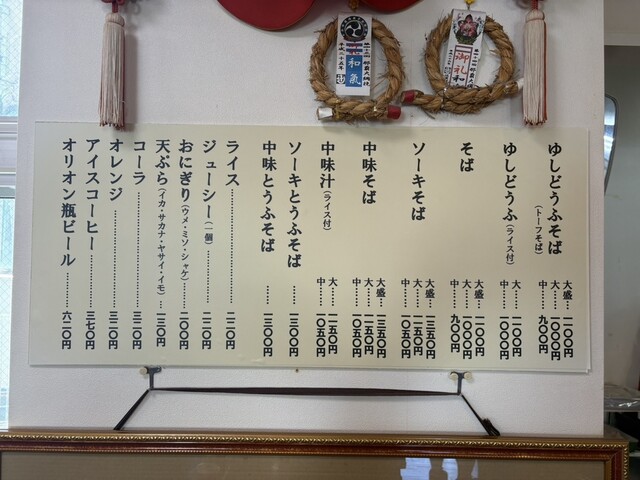 ゆしどうふそば
(トーフそば)
大盛…一一〇〇円
大…一〇〇〇円
中…九〇〇円
ゆしどうふ(ライス付)
大…一一〇〇円
中…一〇〇〇円
そば
大盛…一一〇〇円
大…一〇〇〇円
中…九〇〇円
ソーキそば
大盛…一三五〇円
大…一一五〇円
中…一〇五〇円
中味そば
大盛…一三五〇円
大…一一五〇円
中…一〇五〇円
中味汁(ライス付)
大…一一五〇円
中…一〇五〇円
ソーキとうふそば……一三〇〇円
中味とうふそば……一三〇〇円
ライス……二二〇円
ジューシー(一個)……二二〇円
おにぎり(ウメ・ミソ・シャケ)……二〇〇円
天ぷら(イカ・サカナ・ヤサイ・イモ)…一三〇円
コーラ……三二〇円
オレンジ……三二〇円
アイスコーヒー……三七〇円
オリオン瓶ビール……六二〇円
和氣
御礼